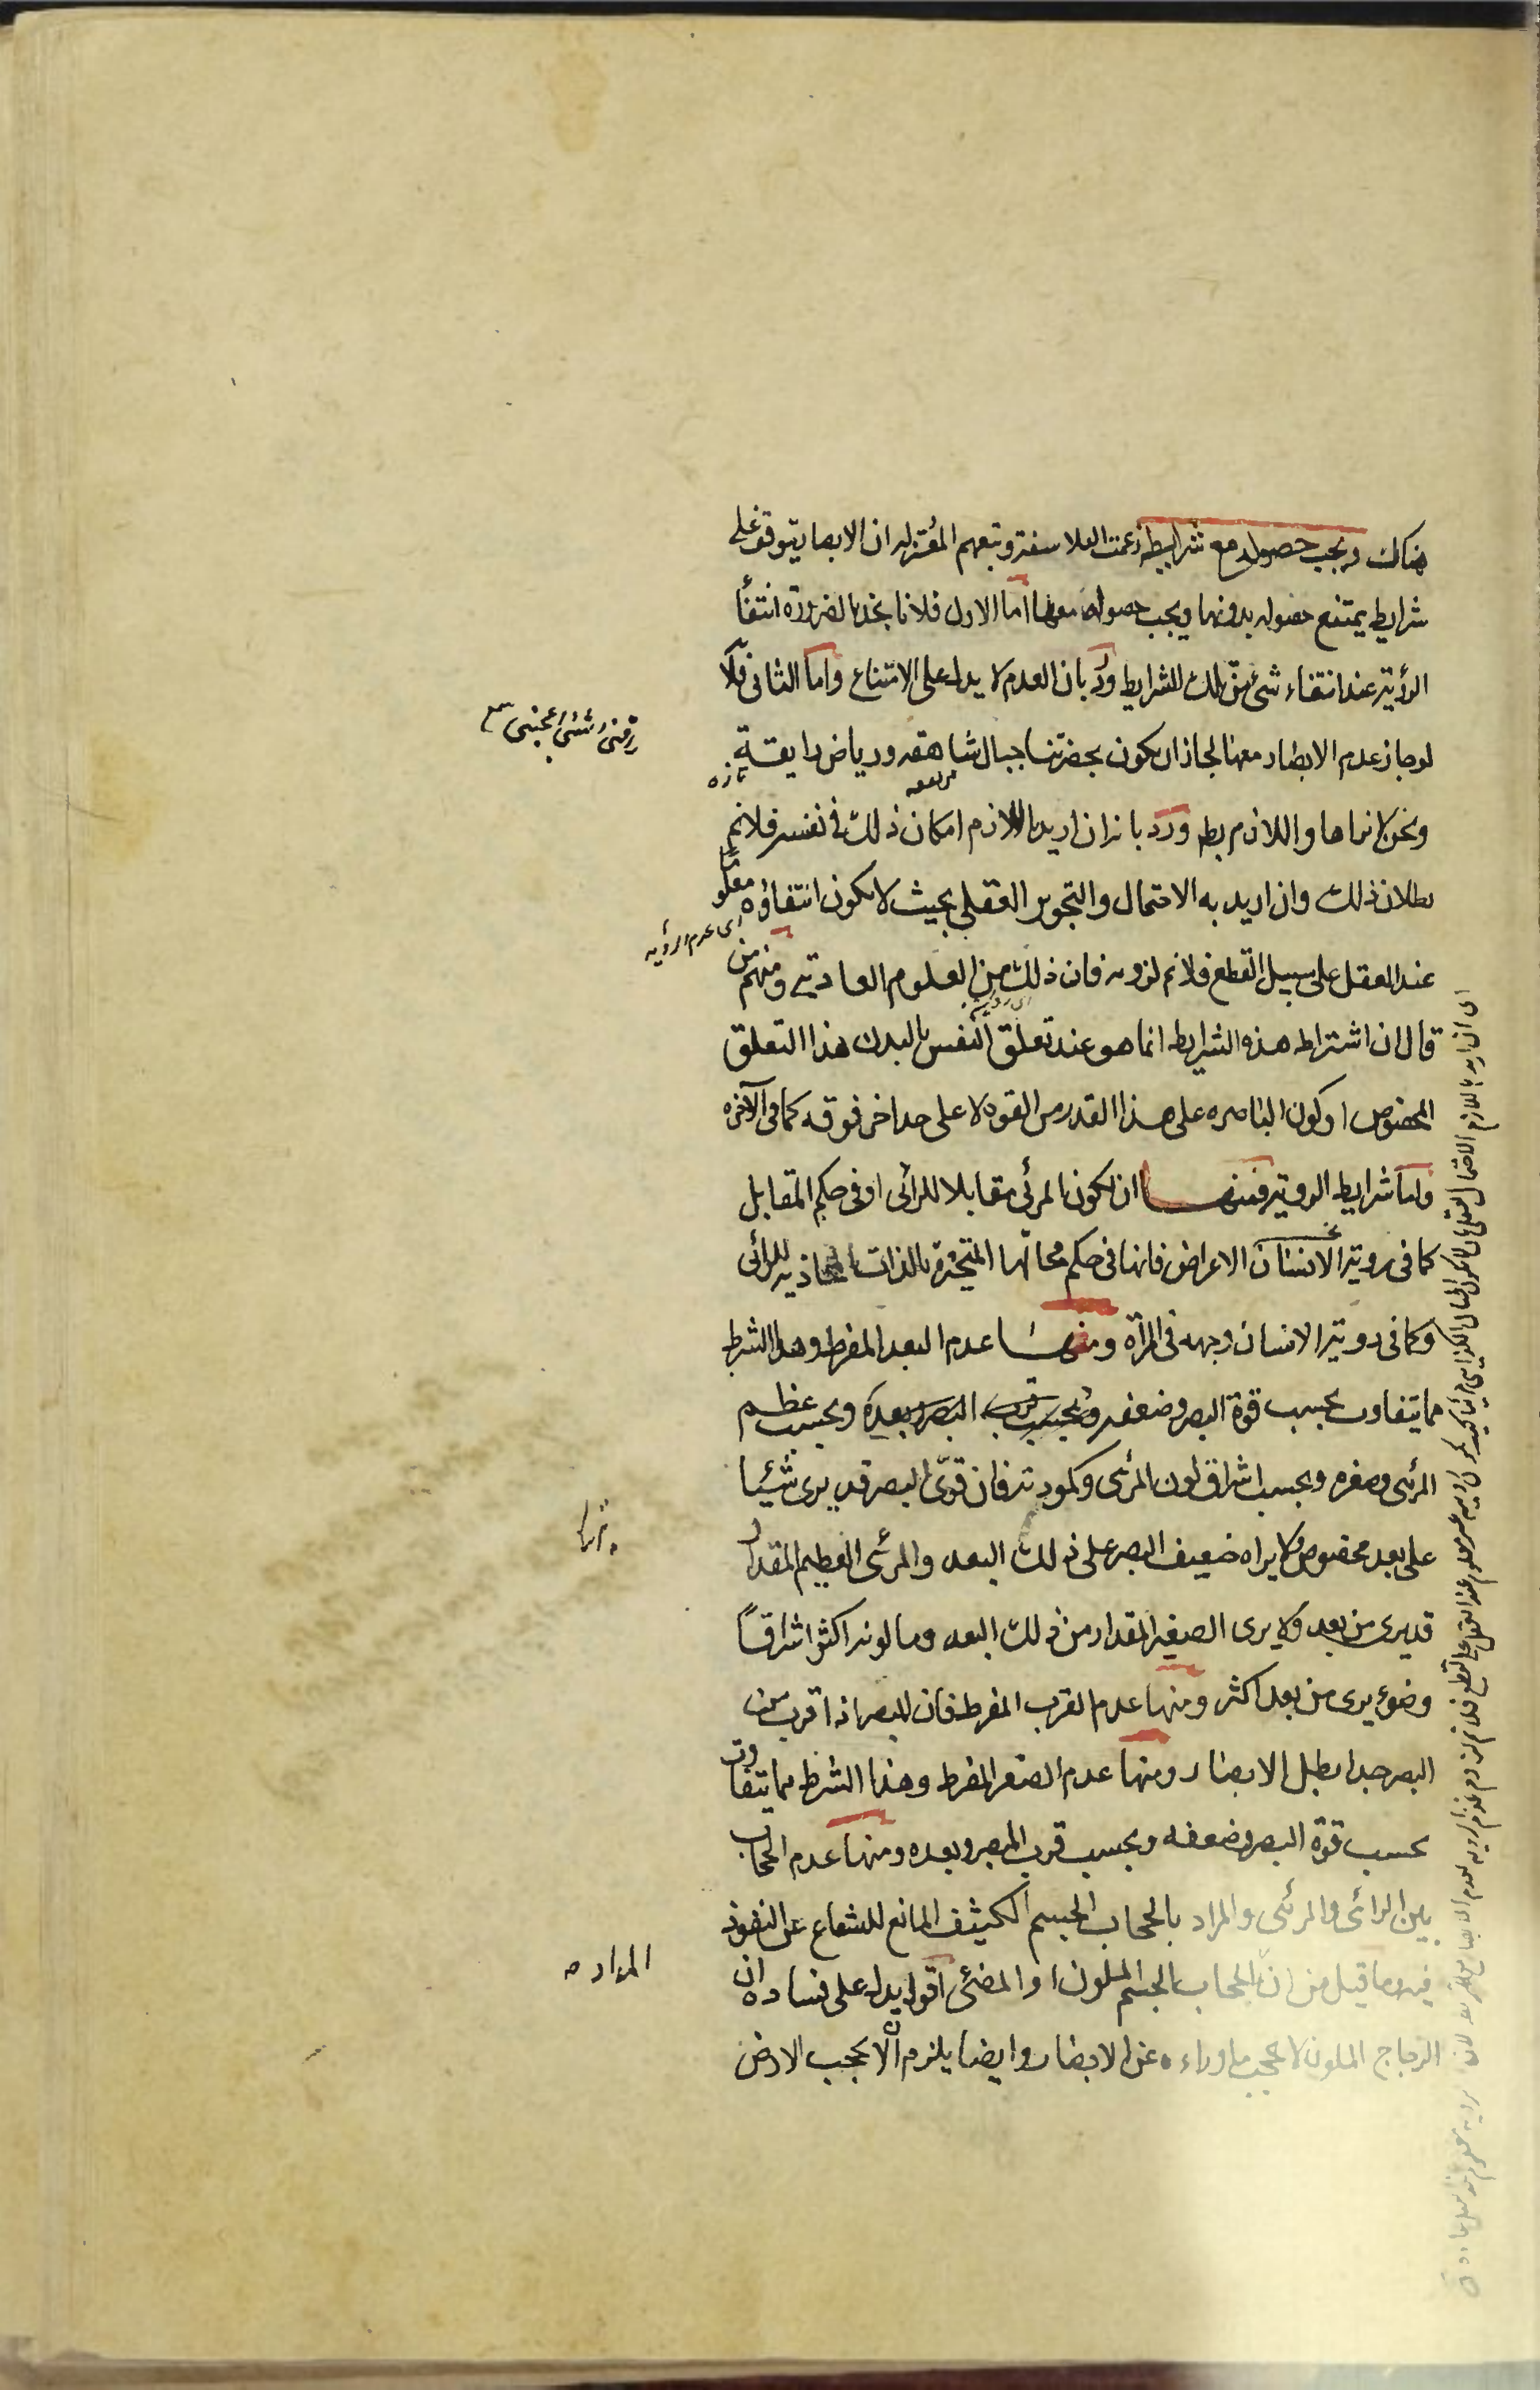 هناك ويجب حصوله مع شرايطه زعمت الفلاسفة وتبعهم المعتزله ان الابصار يتوقف على
شرايط يمتنع حصوله بدونها ويجب حصوله معها اما الاول فلانا نجد بالضرورة انتفأ
الرؤية عند انتفاء شئ من تلك الشرايط ورُدّ بان العدم لا يدل على الامتناع واما الثانى فلانّه
لو جاز عدم الابصار معها لجاز ان يكون بحضرتنا جبال شاهقه ورياض رايقة
مرتفعه
تازه
ونحن لا نراها واللازم بط ورد بانه ان اريد باللازم امكان ذلك فى نفسه فلا نم
بطلان ذلك وان اريد به الاحتمال والتجويز العقلى بحيث لا يكون انتفاؤه معلوما
اى عدم الرؤيه
عند العقل على سبيل القطع فلا نم لزومه فان ذلك من العلوم العادية ومنهم من
قال ان اشتراط هذه الشرايط انما هو عند تعلق النفس بالبدن هذا التعلق
المخصوص او كون الباصره على هذا القدر من القوه لا على حد اخر فوقه كما فى الآخره
واما شرايط الروية فمنها ان يكون المرئى مقابلا للرائى او فى حكم المقابل
كما فى روية الانسان الاعراض فانها فى حكم محالّها المتحيزة بالذات المحاذيه للرائى
وكما فى روية الانسان وجهه فى المرآة ومنها عدم البعد المفرط وهذا الشرط
مما يتفاوت بحسب قوة البصر وضعفه وبحسب قرب البصر وبعده وبحسب عظم
المرئى وصغره وبحسب اشراق لون المرئى وكمودته فان قوىّ البصر قد يرى شيئا
على بعد مخصوص لا يراه ضعيف البصر على ذلك البعد والمرئى العظيم المقدار
قد يرى من بعد ولا يرى الصغير المقدار من ذلك البعد وما لونه اكثر اشراقًا
وضوء يرى من بعد اكثر ومنها عدم القرب المفرط فان المبصر اذا قرب من
البصر جدا بطل الابصار ومنها عدم الصغر المفرط وهذا الشرط مما يتفاوت
بحسب قوة البصر وضعفه وبحسب قرب المبصر وبعده ومنها عدم الحجاب
بين الرائى والمرئى والمراد بالحجاب الجسم الكثيف المانع للشعاع عن النفوذ
فيه وما قيل من ان الحجاب الجسم الملون او المضئى اقول يدل على فساده ان
الزجاج الملون لا يحجب ماوراءه عن الابصار وايضا يلزم ان لا يحجب الارض